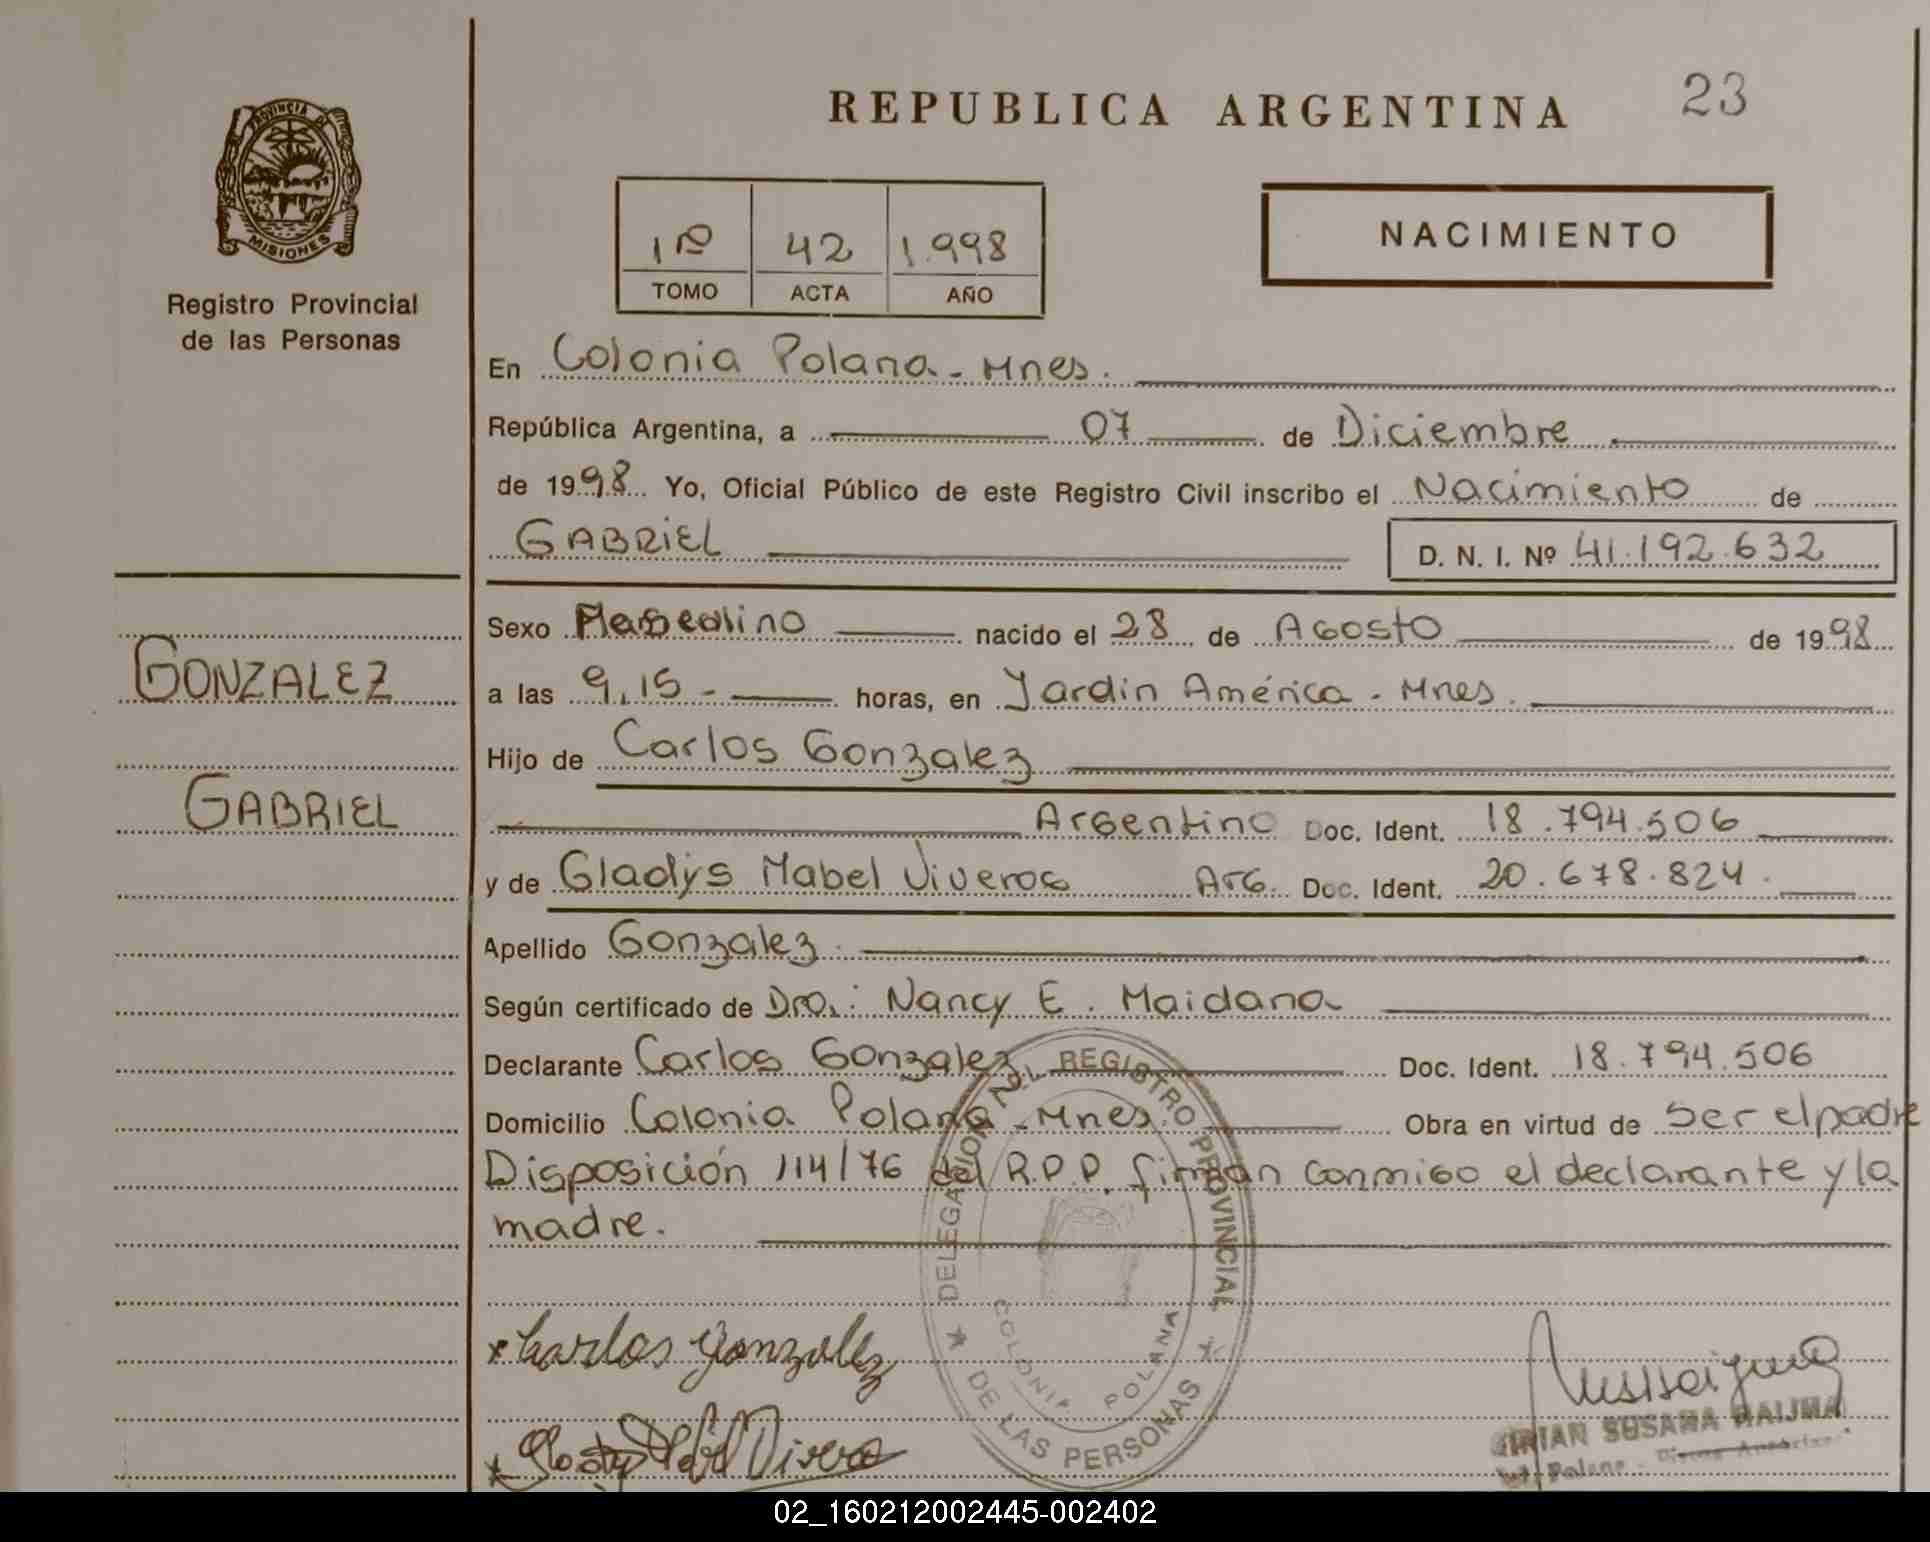 REPUBLICA ARGENTINA 23
PROVINCIA DE
MISIONES
Registro Provincial
de las Personas
1º 42 1.998
TOMO ACTA AÑO
NACIMIENTO
En Colonia Polana - Mnes.
República Argentina, a 07 de Diciembre
de 1998 Yo, Oficial Público de este Registro Civil inscribo el Nacimiento de
GABRIEL D. N. I. Nº 41.192.632
Sexo Masculino nacido el 28 de Agosto de 1998
GONZALEZ
a las 9,15 - horas, en Jardín América - Mnes.
Hijo de Carlos Gonzalez
GABRIEL
Argentino Doc. Ident. 18.794.506
y de Gladys Mabel Viveros Arg. Doc. Ident. 20.678.824.
Apellido Gonzalez
Según certificado de Dra.: Nancy E. Maidana
Declarante Carlos Gonzalez Doc. Ident. 18.794.506
Domicilio Colonia Polana - Mnes. Obra en virtud de ser el padre
Disposición 114/76 del R.P.P. firman conmigo el declarante y la
madre.
DELEGACION DEL REGISTRO PROVINCIAL
DE LAS PERSONAS
COLONIA POLANA
Carlos Gonzalez
SUSANA
Polana
02_160212002445-002402